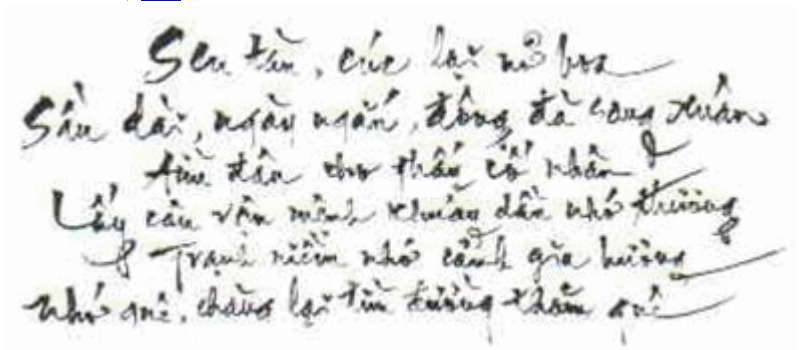 Sen tàn, cúc lại nở hoa
Sầu dài, ngày ngắn, đông đà sang xuân
Tìm đâu cho thấy cố nhân
Lấy câu vận mệnh khuây dần nhớ thương
Chạnh niềm nhớ cảnh gia hương
Nhớ quê, chàng lại tìm đường thăm quê